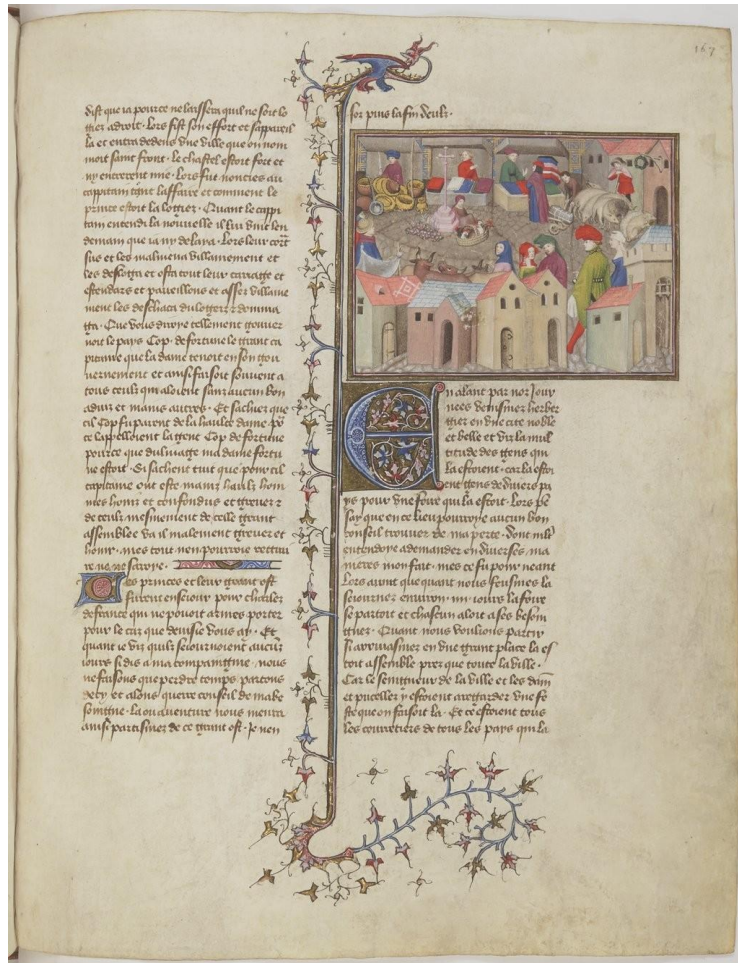 167
dist que ia pource ne laissera quil ne soit lo
gier adroit. Lors fist son effort et sappareil
la et entra dedens une ville que on nom
moit saint front. le chastel estoit fort et
ny entrerent mie. Lors fut noncies au
cappitain tout laffaire et comment le
prince estoit la logiez. Quant le cappi
tain entendi la nouvelle il leur vint len
demain que ia ny delaia. Lors leur cort
sus et les malmena villainement et
les desloga et osta tout leur cariage et
estendars et paveillons et asses villaine
ment les
ga. Que vous diroye tellement grever
noit le pays Cop de fortune le grant ca
pitaine que la dame tenoit en son gou
vernement et ainsi faisoit souvent a
tous ceulz qui aloient sans aucun bon
adviz et mains autres. Et sachiez que
cil Cop fu parent de la haulte dame
ce lappelloient la gent Cop de fortune
pource que du lignage ma dame fortu
ne estoit. Si sachent tuit que pour cil
capitaine ont este mains haulz hom
mes honniz et confondus et grevez
de ceulz mesmement de celle grant
assemblee va il malement grever et
honnir. mes tout nen pourroie
re ne ne saroye.
Les princes et leur grant ost
furent en seiour pour charles
de france qui ne pouoit armes porter
pour le cas que devisie vous ay. Et
quant ie viz quilz seiournoient aucuns
iours si dis a ma compaingnie. nous
ne faisons que perdre temps partons
de cy et alons querre conseil de nostre
besoingne. la ou aventure nous menra
ainsi partismes de ce grant ost. Je nen
soy puis la fin deulz.
En alant par noz iour
nees venismes herber
gier en une cite noble
et belle et viz la mul
titude des gens qui
la estoient. car la estoi
ent gens de divers pa
ys pour une foire qui la estoit. Lors pen
say que en ce lieu pourroye aucun bon
conseil trouver de ma perte. dont mlt
entendoye a demander en diverses ma
nieres mon fait. mes ce fu pour neant
Lors avint que quant nous feusmes la
seiournez environ .iiii. iours la foire
se partoit et chascun aloit a ses besoin
gnes. Quant nous voulions partir
si avisasmes en une grant place la es
toit assemble prez que toute la ville.
Car le seigneur de la ville et les dames
et pucelles y estoient a regarder une fe
ste que on faisoit la. Et ce estoient tous
les courretiers de tous les pays qui la